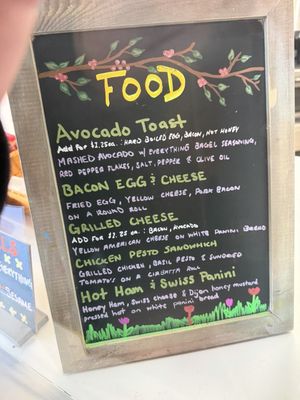 FOOD
Avocado Toast
ADD FOR $2.25 ea.: HARD BOILED EGG, BACON, HOT HONEY
MASHED AVOCADO W/ EVERYTHING BAGEL SEASONING,
RED PEPPER FLAKES, SALT, PEPPER & OLIVE OIL
BACON EGG & CHEESE
FRIED EGG, YELLOW CHEESE, PORK BACON
ON A ROUND ROLL
GRILLED CHEESE
ADD FOR $2.25 ea.: BACON, AVOCADO
YELLOW AMERICAN CHEESE ON WHITE PANINI BREAD
CHICKEN PESTO SANDWICH
GRILLED CHICKEN, BASIL PESTO & SUNDRIED
TOMATO'S ON A CIABATTA ROLL
Hot Ham & Swiss Panini
Honey Ham, Swiss cheese & Dijon honey mustard
pressed hot on white panini bread